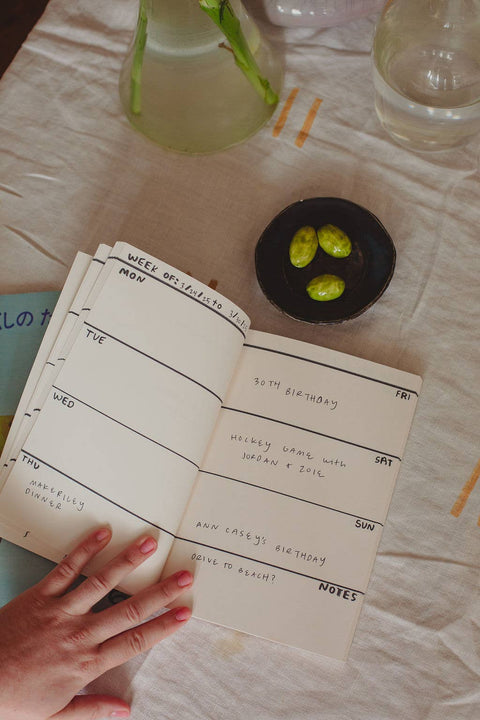 WEEK OF: 3/24/25 to
MON
TUE
WED
THU
MAKE RILEY
DINNER
FRI
30TH BIRTHDAY
SAT
HOCKEY GAME with
JORDAN & ZOIE
SUN
ANN CASEY'S BIRTHDAY
NOTES
DRIVE TO BEACH?
しの